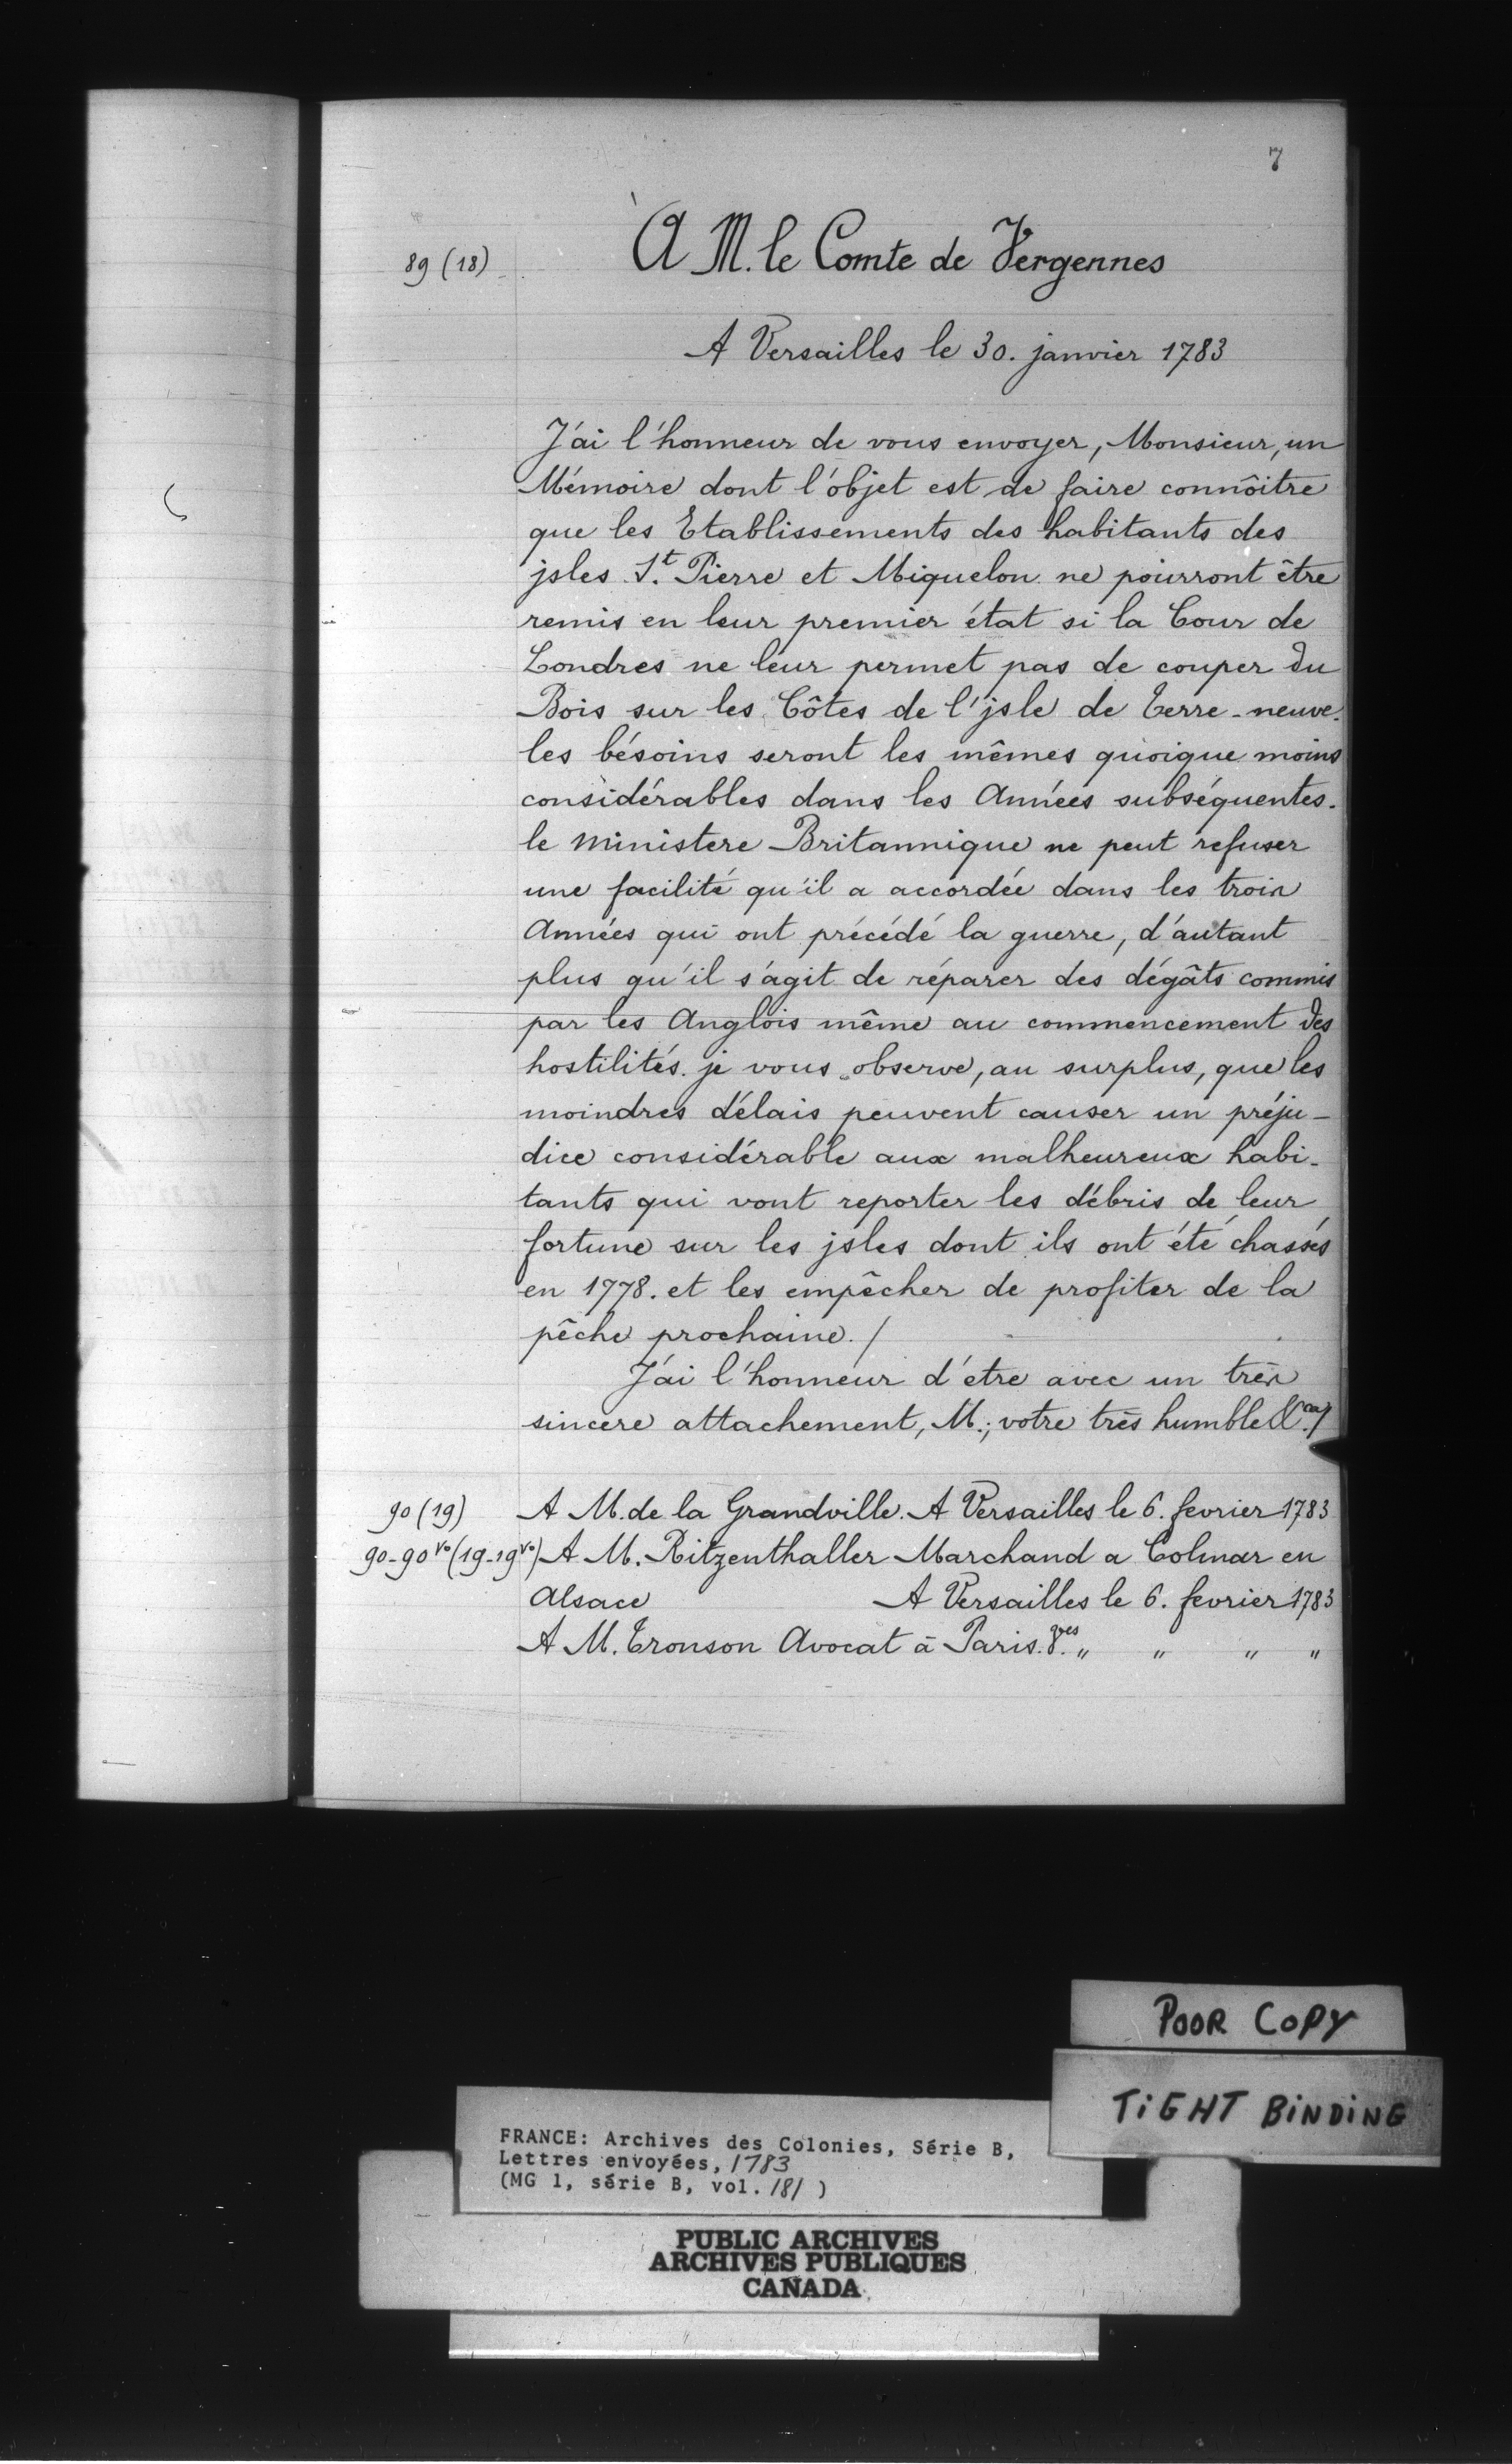 7
89 (18)
À M. le Comte de Vergennes
A Versailles le 30. janvier 1783
J'ai l'honneur de vous envoyer, Monsieur, un
Mémoire dont l'objet est de faire connôitre
que les Etablissements des habitants des
jsles S.t Pierre et Miquelon ne pourront être
remis en leur premier état si la Cour de
Londres ne leur permet pas de couper du
Bois sur les Côtes de l'jsle de Terre-neuve.
les bésoins seront les mêmes quoique moins
considérables dans les Années subséquentes.
le ministere Britannique ne peut refuser
une facilité qu'il a accordée dans les trois
Années qui ont précédé la guerre, d'autant
plus qu'il s'agit de réparer des dégâts commis
par les Anglois même au commencement des
hostilités. je vous observe, au surplus, que les
moindres délais peuvent causer un préju-
dice considérable aux malheureux habi-
tants qui vont reporter les débris de leur
fortune sur les jsles dont ils ont été chassés
en 1778. et les empêcher de profiter de la
pêche prochaine./
J'ai l'honneur d'etre avec un très
sincere attachement, M.; votre très humble &.ca/
90 (19) A M. de la Grandville. A Versailles le 6. fevrier 1783
90-90 vo (19-19 vo) A M. Ritzenthaller Marchand a Colmar en
Alsace A Versailles le 6. fevrier 1783
A M. Tronson Avocat à Paris. " " " "
POOR COPY
TIGHT BINDING
FRANCE: Archives des Colonies, Série B,
Lettres envoyées, 1783
(MG 1, série B, vol. 181 )
PUBLIC ARCHIVES
ARCHIVES PUBLIQUES
CANADA